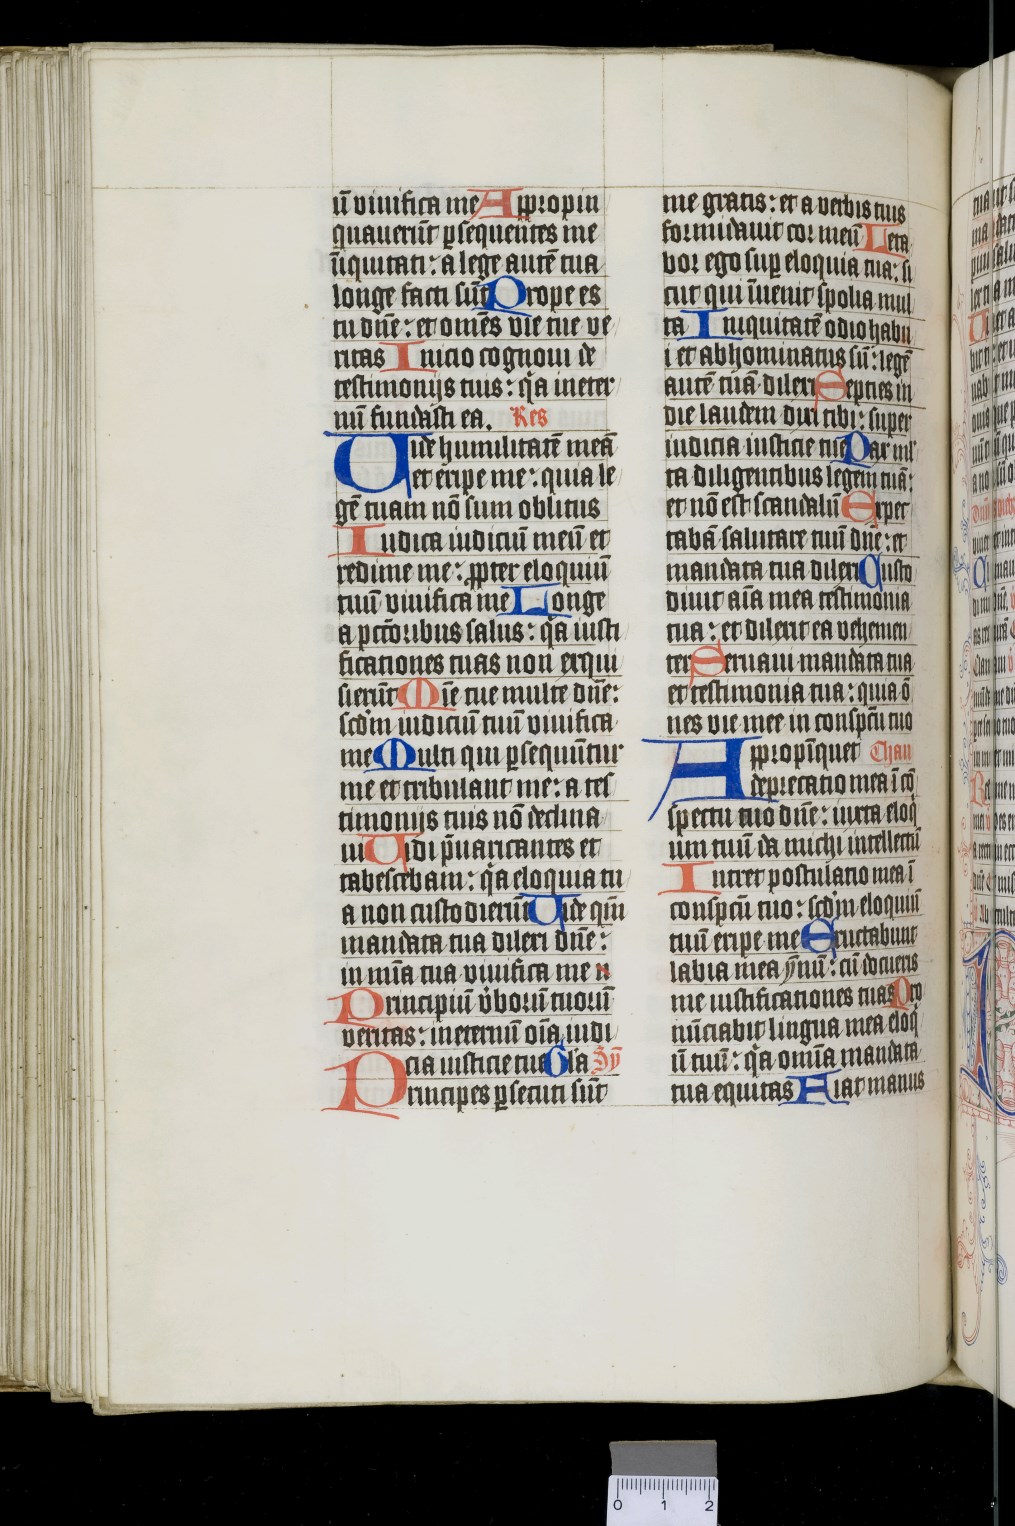 ū viuifica me Appropin
quauerūt ꝑsequentes me
īiquitati: a lege autē tua
longe facti sūt Prope es
tu dn̄e: et om̄es vie tue ve
ritas Inicio cognoui de
testimonijs tuis: qͣa ineter
nū fundasti ea. Res
Uide humilitatē meā
et eripe me: quia le
gē tuam nō sum oblitus
Iudica iudiciū meū et
redime me: ꝓpter eloquiū
tuū viuifica me Longe
a pctōribus salus: qͣa iusti
ficationes tuas non exqui
sierūt Mīe tue multe dn̄e:
scd̄m iudiciū tuū viuifica
me Multi qui ꝑsequūtur
me et tribulant me: a tes
timonijs tuis nō declina
ui Uidi p̄uaricantes et
tabescebam: qͣa eloquia tu
a non custodierūt Uide qm̄
mandata tua dilexi dn̄e:
in mīa tua viuifica me
Principiū v̓borū tuorū
veritas: ineternū oīa iudi
cia iusticie tue Gl̄a Sȳ
Principes ꝑsecuti sūt
me gratis: et a verbis tuis
formidauit cor meū Leta
bor ego sup̱ eloquia tua: si
cut qui īuenit spolia mul
ta Iniquitatē odio habu
i et abhominatus sū: legē
autē tuā dilexi Septies in
die laudem dixi tibi: super
iudicia iusticie tue Pax ml̓
ta diligentibus legem tuā:
et nō est scandalū Expec
tabā salutare tuū dn̄e: et
mandata tua dilexi Custo
diuit aīa mea testimonia
tua: et dilexit ea vehemen
ter Seruaui mandata tua
et testimonia tua: quia ō
nes vie mee in conspc̄u tuo
Appropīquet Chau
deprecatio mea ī cō
spectu tuo dn̄e: iuxta eloq̄
ium tuū da michi intellectū
Intret postulatio mea ī
conspc̄u tuo: scd̄m eloquiū
tuū eripe me Eructabunt
labia mea ȳnū: cū docueris
me iustificationes tuas Pro
nūciabit lingua mea eloq̄
iū tuū: qͣa omīa mandata
tua equitas Fiat manus